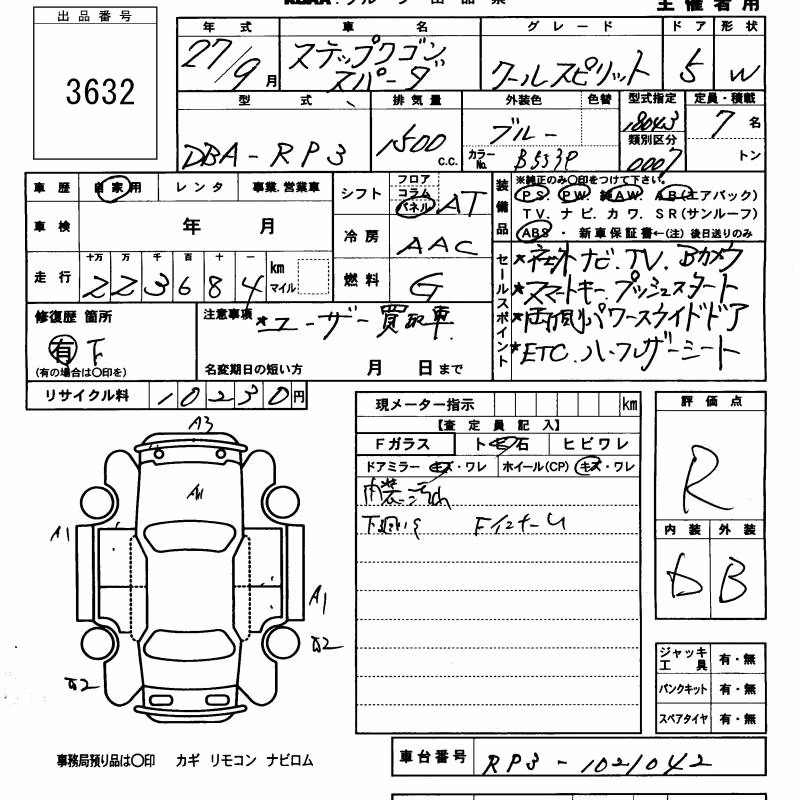 主催者用
出品番号
3632
年式 車名 グレード ドア 形状
27/9月 ステップワゴン スパーダ クールスピリット 5 W
型式 排気量 外装色 色替 型式指定 定員・積載
DBA-RP3 1500 c.c. ブルー 18043 7名
カラーNo. B553P 類別区分 0007 トン
車歴 自家用 レンタ 事業、営業車
シフト フロア コラム パネル AT
装備品 ※純正のみ〇印をつけて下さい。
PS. PW. 純AW. AB(エアバック)
TV. ナビ. カワ. SR(サンルーフ)
ABS ・ 新車保証書←(注) 後日送りのみ
車検 年 月
冷房 AAC
走行 十万 万 千 百 十 一
223684 km マイル
燃料 G
セールスポイント
*社外ナビ.TV.Bカメラ
*スマートキー プッシュスタート
*両側パワースライドドア
*ETC.ハーフレザーシート
修復歴 箇所
有
(有の場合は〇印を)
注意事項 *ユーザー買取車
名変期日の短い方 月 日まで
リサイクル料 10230円
現メーター指示 km
【査定員記入】
Fガラス トビ石 ヒビワレ
ドアミラー キズ・ワレ ホイール(CP) キズ・ワレ
内装汚れ
下廻りS Fインナーし
評価点
R
内装 外装
D B
A3
A1
A1
A1
ジャッキ 工具 有・無
パンクキット 有・無
スペアタイヤ 有・無
事務局預り品は〇印 カギ リモコン ナビロム
車台番号 RP3-1021042